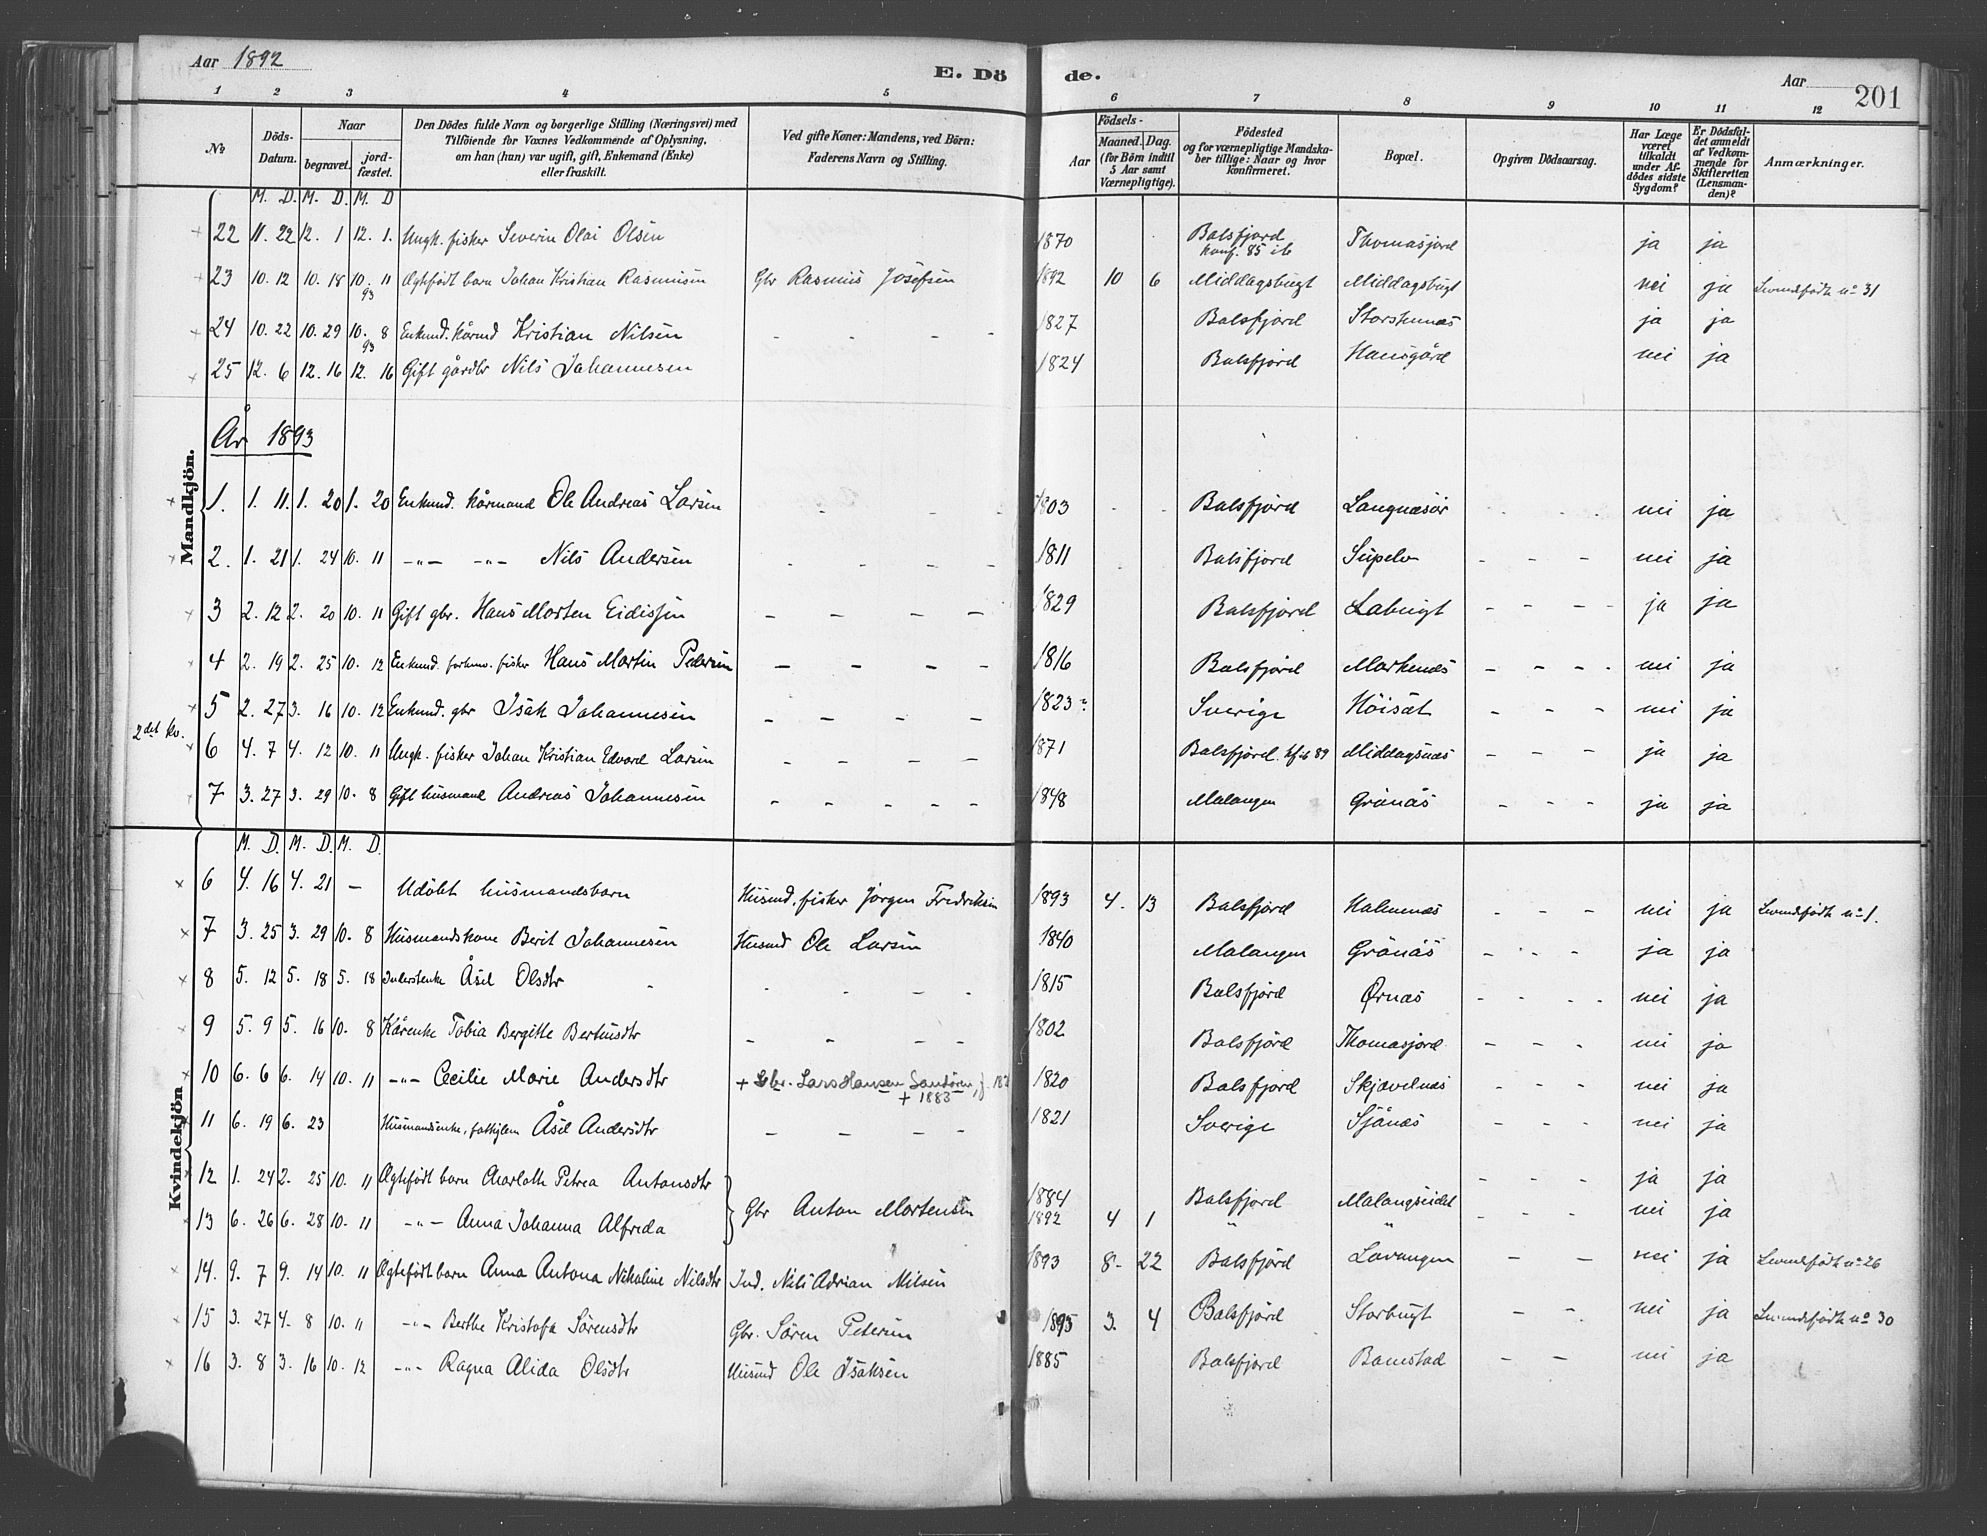 Aar 1892
E. Dö de.
Aar 201
1 2 3 4 5 6 7 8 9 10 11 12
No
Döds-Datum.
Naar
begravet. jordfæstet.
Den Dödes fulde Navn og borgerlige Stilling (Næringsvei) med
Tilföiende for Voxnes Vedkommende af Oplysning,
om han (hun) var ugift, gift, Enkemand (Enke)
eller fraskilt.
Ved gifte Koner: Mandens, ved Börn:
Faderens Navn og Stilling.
Födsels-
Aar Maaned. Dag.
(for Börn indtil
5 Aar samt
Værnepligtige).
Födested
og for værnepligtige Mandska-
ber tillige: Naar og hvor
konfirmeret.
Bopæl.
Opgiven Dödsaarsag.
Har Læge
været
tilkaldt
under Af-
dödes sidste
Sygdom?
Er Dödsfal-
det anmeldt
af Vedkom-
mende for
Skifteretten
(Lensman-
den)?
Anmærkninger.
Mandkjön.
M. D. M. D. M. D
22 11. 22 12. 1 12. 1. Ungk. fisker Severin Olai Olsen 1870 Balsfjord Thomasjord ja ja
konf. 85 ib
23 10. 12 10. 18 10. 11 Ægtefødt barn Johan Kristian Rasmusen Gbr Rasmus Josefsen 1892 10 6 Middagsbugt Middagsbugt nei ja Levendefødte no 31
93
24 10. 22 10. 29 10. 8 Enkemd. kårmd Kristian Nilsen - - - 1827 Balsfjord Storstennæs ja ja
93
25 12. 6 12. 16 12. 16 Gift gårdbr Nils Johannesen 1824 Balsfjord Hansgård nei ja
År 1893
1. 1. 11. 1. 20 1. 20 Enkemd. kårmand Ole Andreas Larsen - - - 1803 Balsfjord Langnæsör - - - nei ja
2. 1. 21 1. 24 10. 11 -"- -"- Nils Andersen - - - - 1811 Balsfjord Süpelv - - - nei ja
3 2. 12 2. 20 10. 11 Gift gbr. Hans Morten Eidissen - - - - 1829 Balsfjord Labugt - - - - ja ja
4 2. 19 2. 25 10. 12 Enkemd. forhenv. fisker Hans Martin Pedersen - - - - 1816 Balsfjord Markenes - - - - nei ja
5 2. 27 3. 16 10. 12 Enkemd. gbr Isak Johannesen - - - - 1823 Sverige Höisæt - - - nei ja
2det kv.
6 4. 7 4. 12 10. 11 Ungk. fisker Johan Kristian Edvard Larsen - - - - 1871 Balsfjord kf ib 89 Middagsnæs - - - ja ja
7 3. 27 3. 29 10. 8 Gift husmand Andreas Johannesen - - - - - 1848 Malangen Grönås - - - ja ja
Kvindekjön
M. D. M. D. M. D.
6 4. 16 4. 21 - Udöbt husmandsbarn Husmd, fisker Jørgen Fredriksen 1893 4. 13 Balsfjord Malmenæs - - - nei ja Levendefødte no 1.
7 3. 25 3. 29 10. 8 Husmandskone Berit Johannesen Husmd Ole Larsen 1840 Malangen Grönås - - - ja ja
8 5. 12 5. 18 5. 18 Inderstenke Åsel Olsdtr - - - - 1815 Balsfjord Ørnæs - - - - nei ja
9 5. 9 5. 16 10. 8 Kårenke Tobia Bergitte Bertusdtr - - - - 1802 Balsfjord Thomasjord - - - nei ja
10 6. 6 6. 14 10. 11 -"- Cecilie Marie Andersdtr + Gbr. Lars Hansen Sandören, f. 18 1820 Balsfjord Skjævelnæs - - - nei ja
+ 1883
11 6. 19 6. 23 Husmandsenke, fattiglem Åsel Andersdtr - - - - 1821 Sverige Sjånæs - - - nei ja
12 1. 24 2. 25 10. 11 Ægtefødt barn Charlotte Petrea Antonsdtr } Gbr Anton Mortensen 1884 Balsfjord Malangseidet - - - ja ja
13 6. 26 6. 28 10. 11 -"- Anna Johanna Alfreda 1892 4 1 " " - - - nei ja
14. 9. 7 9. 14 10. 11 Ægtefødt barn Anna Antona Nikoline Nilsdtr Ind. Nils Adrian Nilsen 1893 8- 22 Balsfjord Lavangen - - nei ja Levendefødte no 26
15 3. 27 4. 8 10. " -"- Berthe Kristofa Sørensdtr Gbr. Søren Petersen 1893 3. 4 Balsfjord Storbugt - - nei ja Levendefødte no 30
16 3. 8 3. 16 10. 12 -"- Ragna Alida Olsdtr Husmd Ole Isaksen 1885 Balsfjord Bomstad - - nei ja